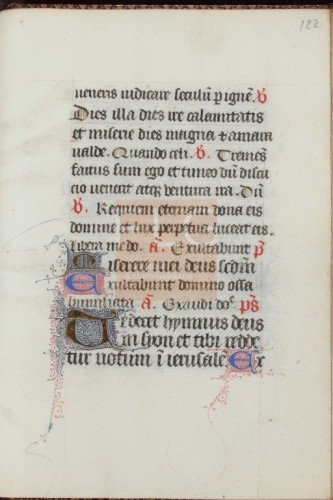 122
veneris iudicare seculū p ignē. V
Dies illa dies ire calamitatis
et miserie dies magna et amara
valde. Quando celi. V. Tremēs
factus sum ego et timeo dū discu
cio venerit atq; ventura ira. Dū
V. Requiem eternam dona eis
domine et lux perpetua luceat eis.
Libera me do. A. Exultabunt P
Miserere mei deus scdm
Exultabunt domino ossa
humiliata A. Exaudi do. Ps
Te decet hymnus deus
in syon et tibi redde
tur votum ī ierusalē Ex